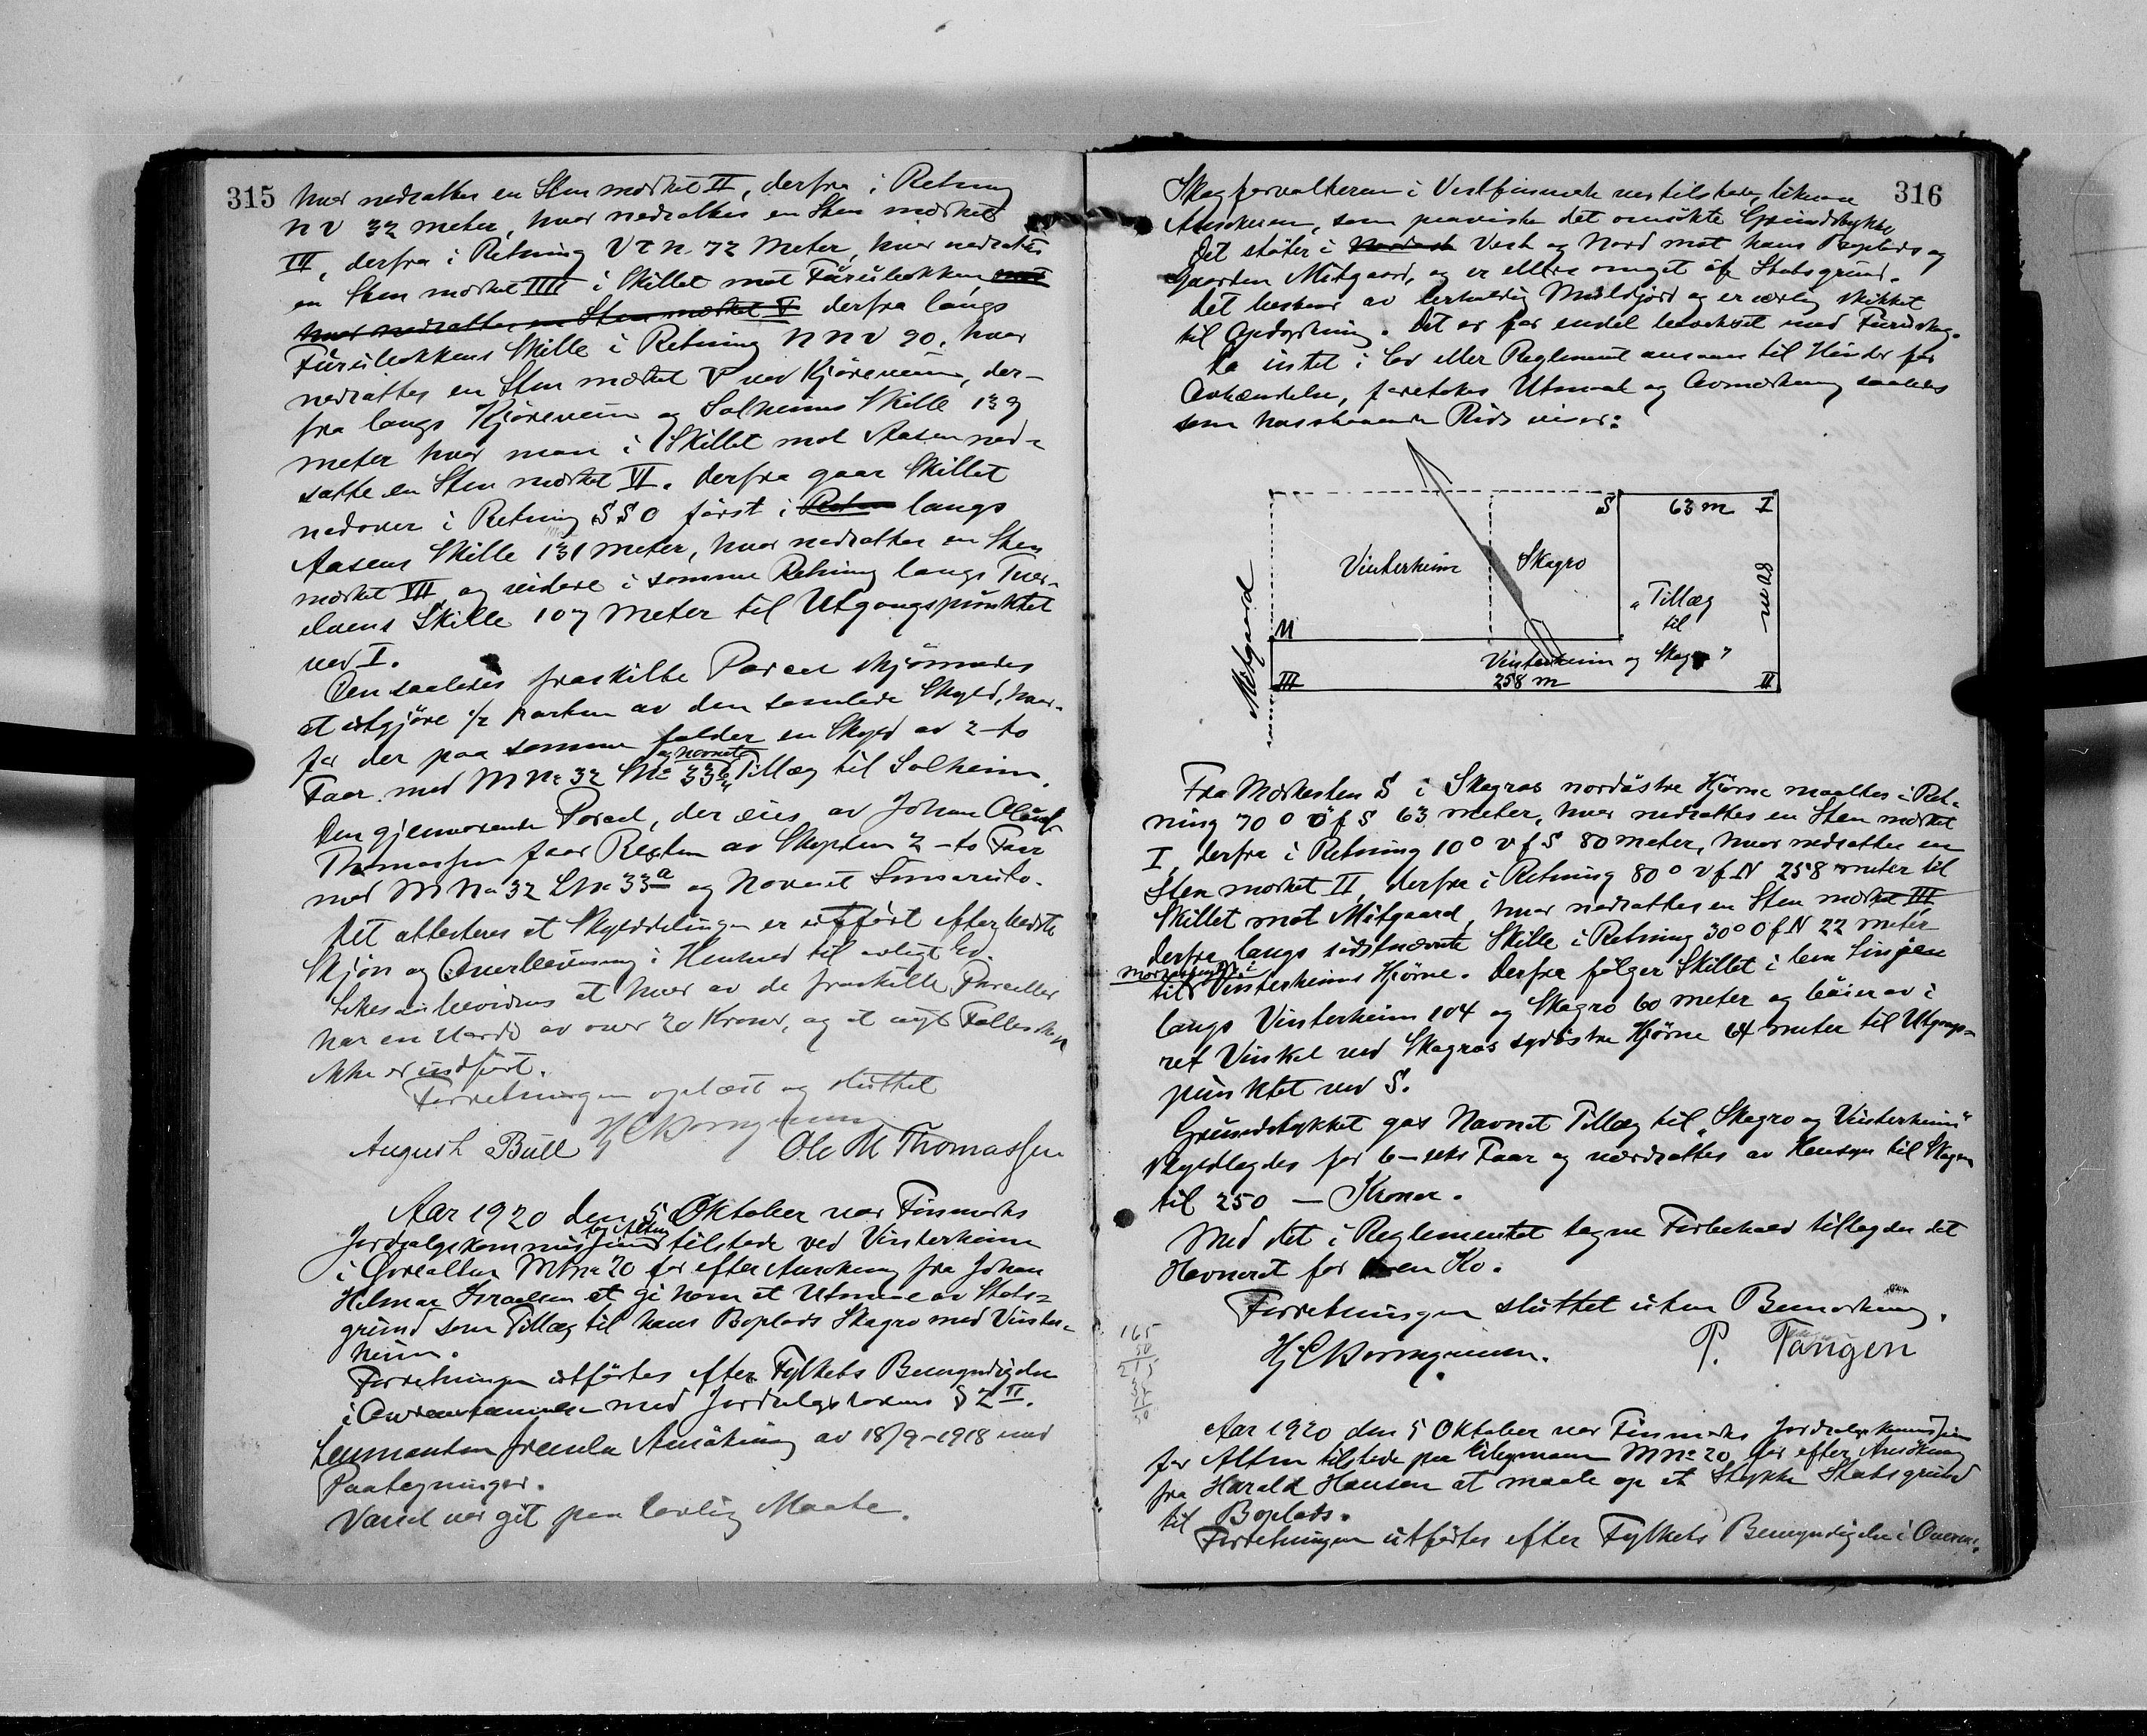 315
hvor nedsattes en Sten mærket II, derfra i Retning
N V 32 meter, hvor nedsattes en Sten mærket
III, derfra i Retning V t N 72 Meter, hvor nedsattes
en Sten mærket IIII i Skillet mot Furubakken
hvor nedsattes en Sten mærket V derfra langs
Furubakkens Skille i Retning N N V 90, hvor
nedsattes en Sten mærket V ved Kjøreveien, der-
fra langs Kjøreveien og Solheims Skille 139
meter hvor man i Skillet mot Aasen ned-
satte en Sten mærket VI. Derfra gaar Skillet
nedover i Retning S S O først i langs
Aasens Skille 131 meter, hvor nedsattes en Sten
mærket VII og videre i samme Retning langs Tver-
elvens Skille 107 Meter til Utgangspunktet
ved I.
Den saaledes fraskilte Parcel skjønnedes
at utgjøre 1/2 parten av den samlede Skyld, hvor-
for der paa samme falder en Skyld av 2-to
Faar med M No 32 L No 33b og navnet "Tillæg til Solheim.
Den gjenværende Parcel, der eies av Johan Oluf
Thomassen faar Resten av Skylden 2-to Faar
med M No 32 L No 33a og Navnet
Det attesteres at Skylddelingen er utført efter bedste
Skjøn og Overbevisning i Henhold til avlagt Ed.
Likesaa bevidnes at hver av de fraskilte Parceller
har en Værdi av over 20 Kroner, og at nyt Fællesskap
ikke er indført.
Forretningen oplæst og sluttet
August Bull Ole M Thomassen
Aar 1920 den 5 Oktober var Finmarks
Jordsalgskommission for Alten tilstede ved Vinterheim
i Øvrealten M No 20 for efter Ansøkning fra Johan
Hilmar Israelsen at gi ham et Utmaal av Stats-
grund som Tillæg til hans Boplads Skogro med Vinter-
heim.
Forretningen utførtes efter Fylkets Bemyndigelse
i Overensstemmelse med Jordsalgslovens § 2 II.
Lensmanden fremla Ansøkning av 18/9-1918 med
Paategninger.
Varsel var git paa lovlig Maate.
316
Skogforvalteren i Vestfinmark var tilstede, likesaa
Ansøkeren, som paaviste det omsøkte Grundstykke
Det støter i Vest og Nord mot hans Boplads og
Gaarden Mitgaard, og er ellers omgit af Statsgrund.
Det bestaar av lerholdig Muldjord og er særlig skikket
til Opdyrkning. Det er for endel bevokset med Furuskog.
Da intet i Lov eller Reglement ansaaes til Hinder for
Avhændelse, foretokes Utmaal og Avmerkning saaledes
som hosstaaende Rids viser:
S 63 m I
Vinterheim Skogro
80 m
"Tillæg
til
Mitgaard
M
Vinterheim og Skogro"
III 258 m II
Fra Merkesten S i Skogros nordøstre Hjørne maaltes i Ret-
ning 70° Ø f S 63 meter, hvor nedsattes en Sten merket
I, derfra i Retning 10° V f S 80 meter, hvor nedsattes en
Sten merket II, derfra i Retning 80° V f N 258 meter til
Skillet mot Mitgaard, hvor nedsattes en Sten merket III
derfra langs sidstnævnte Skille i Retning 30° O f N 22 meter
til Vinterheims Hjørne. Derfra følger Skillet i lem Linjen
langs Vinterheim 104 og Skogro 60 meter og bøier av i
ret Vinkel ved Skogros sydøstre Hjørne 64 meter til Utgangs-
punktet ved S.
Grundstykket gas Navnet Tillæg til "Skogro og Vinterheim"
skyldlagdes for 6-seks Faar og værdsattes av Hensyn til Skogen
til 250 — Kroner.
Med det i Reglementet tagne Forbehold tillagdes det
Havneret for en Ko.
Forretningen sluttet uten Bemerkning.
165
50
215
P. Tangen
Aar 1920 den 5 Oktober var Finmarks Jordsalgskommission
for Alten tilstede paa M No 20 for efter Ansøkning
fra Harald Hansen at maale op et Stykke Statsgrund
til Boplads.
Forretningen utførtes efter Fylkets Bemyndigelse i Overens-